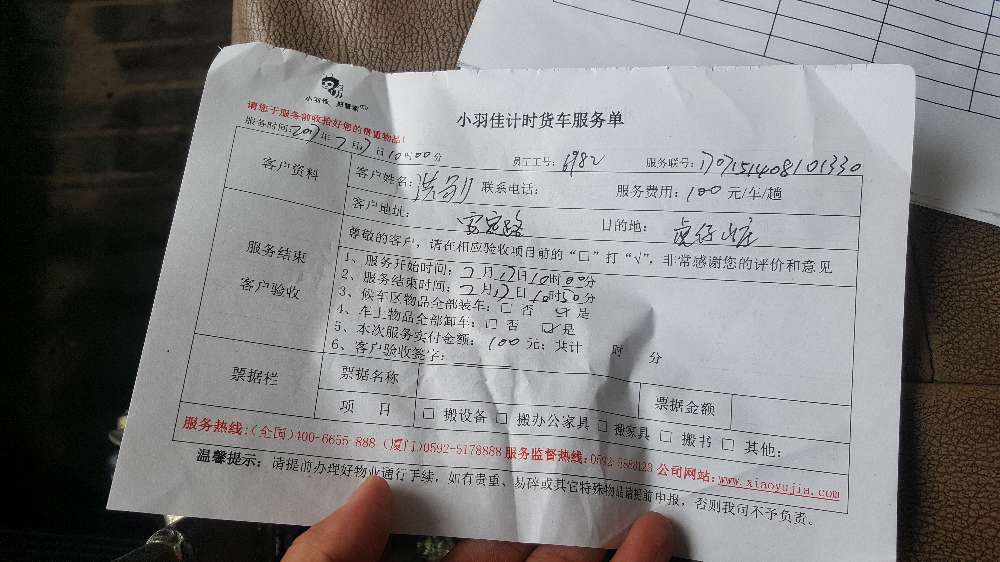 小羽佳
请您于服务前收拾好您的贵重物品!
小羽佳计时货车服务单
服务时间:2017年7月17日10时00分 员工工号:1982 服务联号:
客户资料
客户姓名: 联系电话: 服务费用:100元/车/趟
客户地址: 目的地:虎仔山庄
服务结束
客户验收
尊敬的客户,请在相应验收项目前的“□”打“√”,非常感谢您的评价和意见
1、服务开始时间:7月17日10时00分
2、服务结束时间:7月17日10时50分
3、候车区物品全部装车:□ 否 ☑ 是
4、车上物品全部卸车:□ 否 ☑ 是
5、本次服务实付金额:100元;共计 时 分
6、客户验收签字:
票据栏
票据名称 票据金额
项 目 □ 搬设备 □ 搬办公家具 □ 搬家具 □ 搬书 □ 其他:
服务热线:(全国)400-6655-888 (厦门)0592-5178888 服务监督热线:0592-5888123 公司网站:www.xiaoyujia.com
温馨提示:请提前办理好物业通行手续,如有贵重、易碎或其它特殊物品请提前申报,否则我司不予负责。